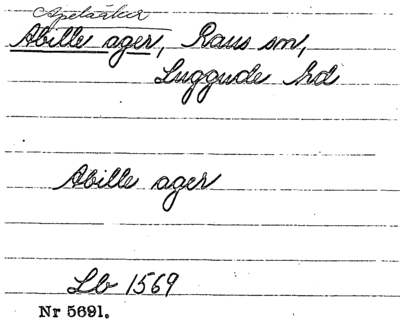 Apelåker
Abille ager, Raus sn,
Luggude hd
Abille ager
Lb 1569
Nr 5691.